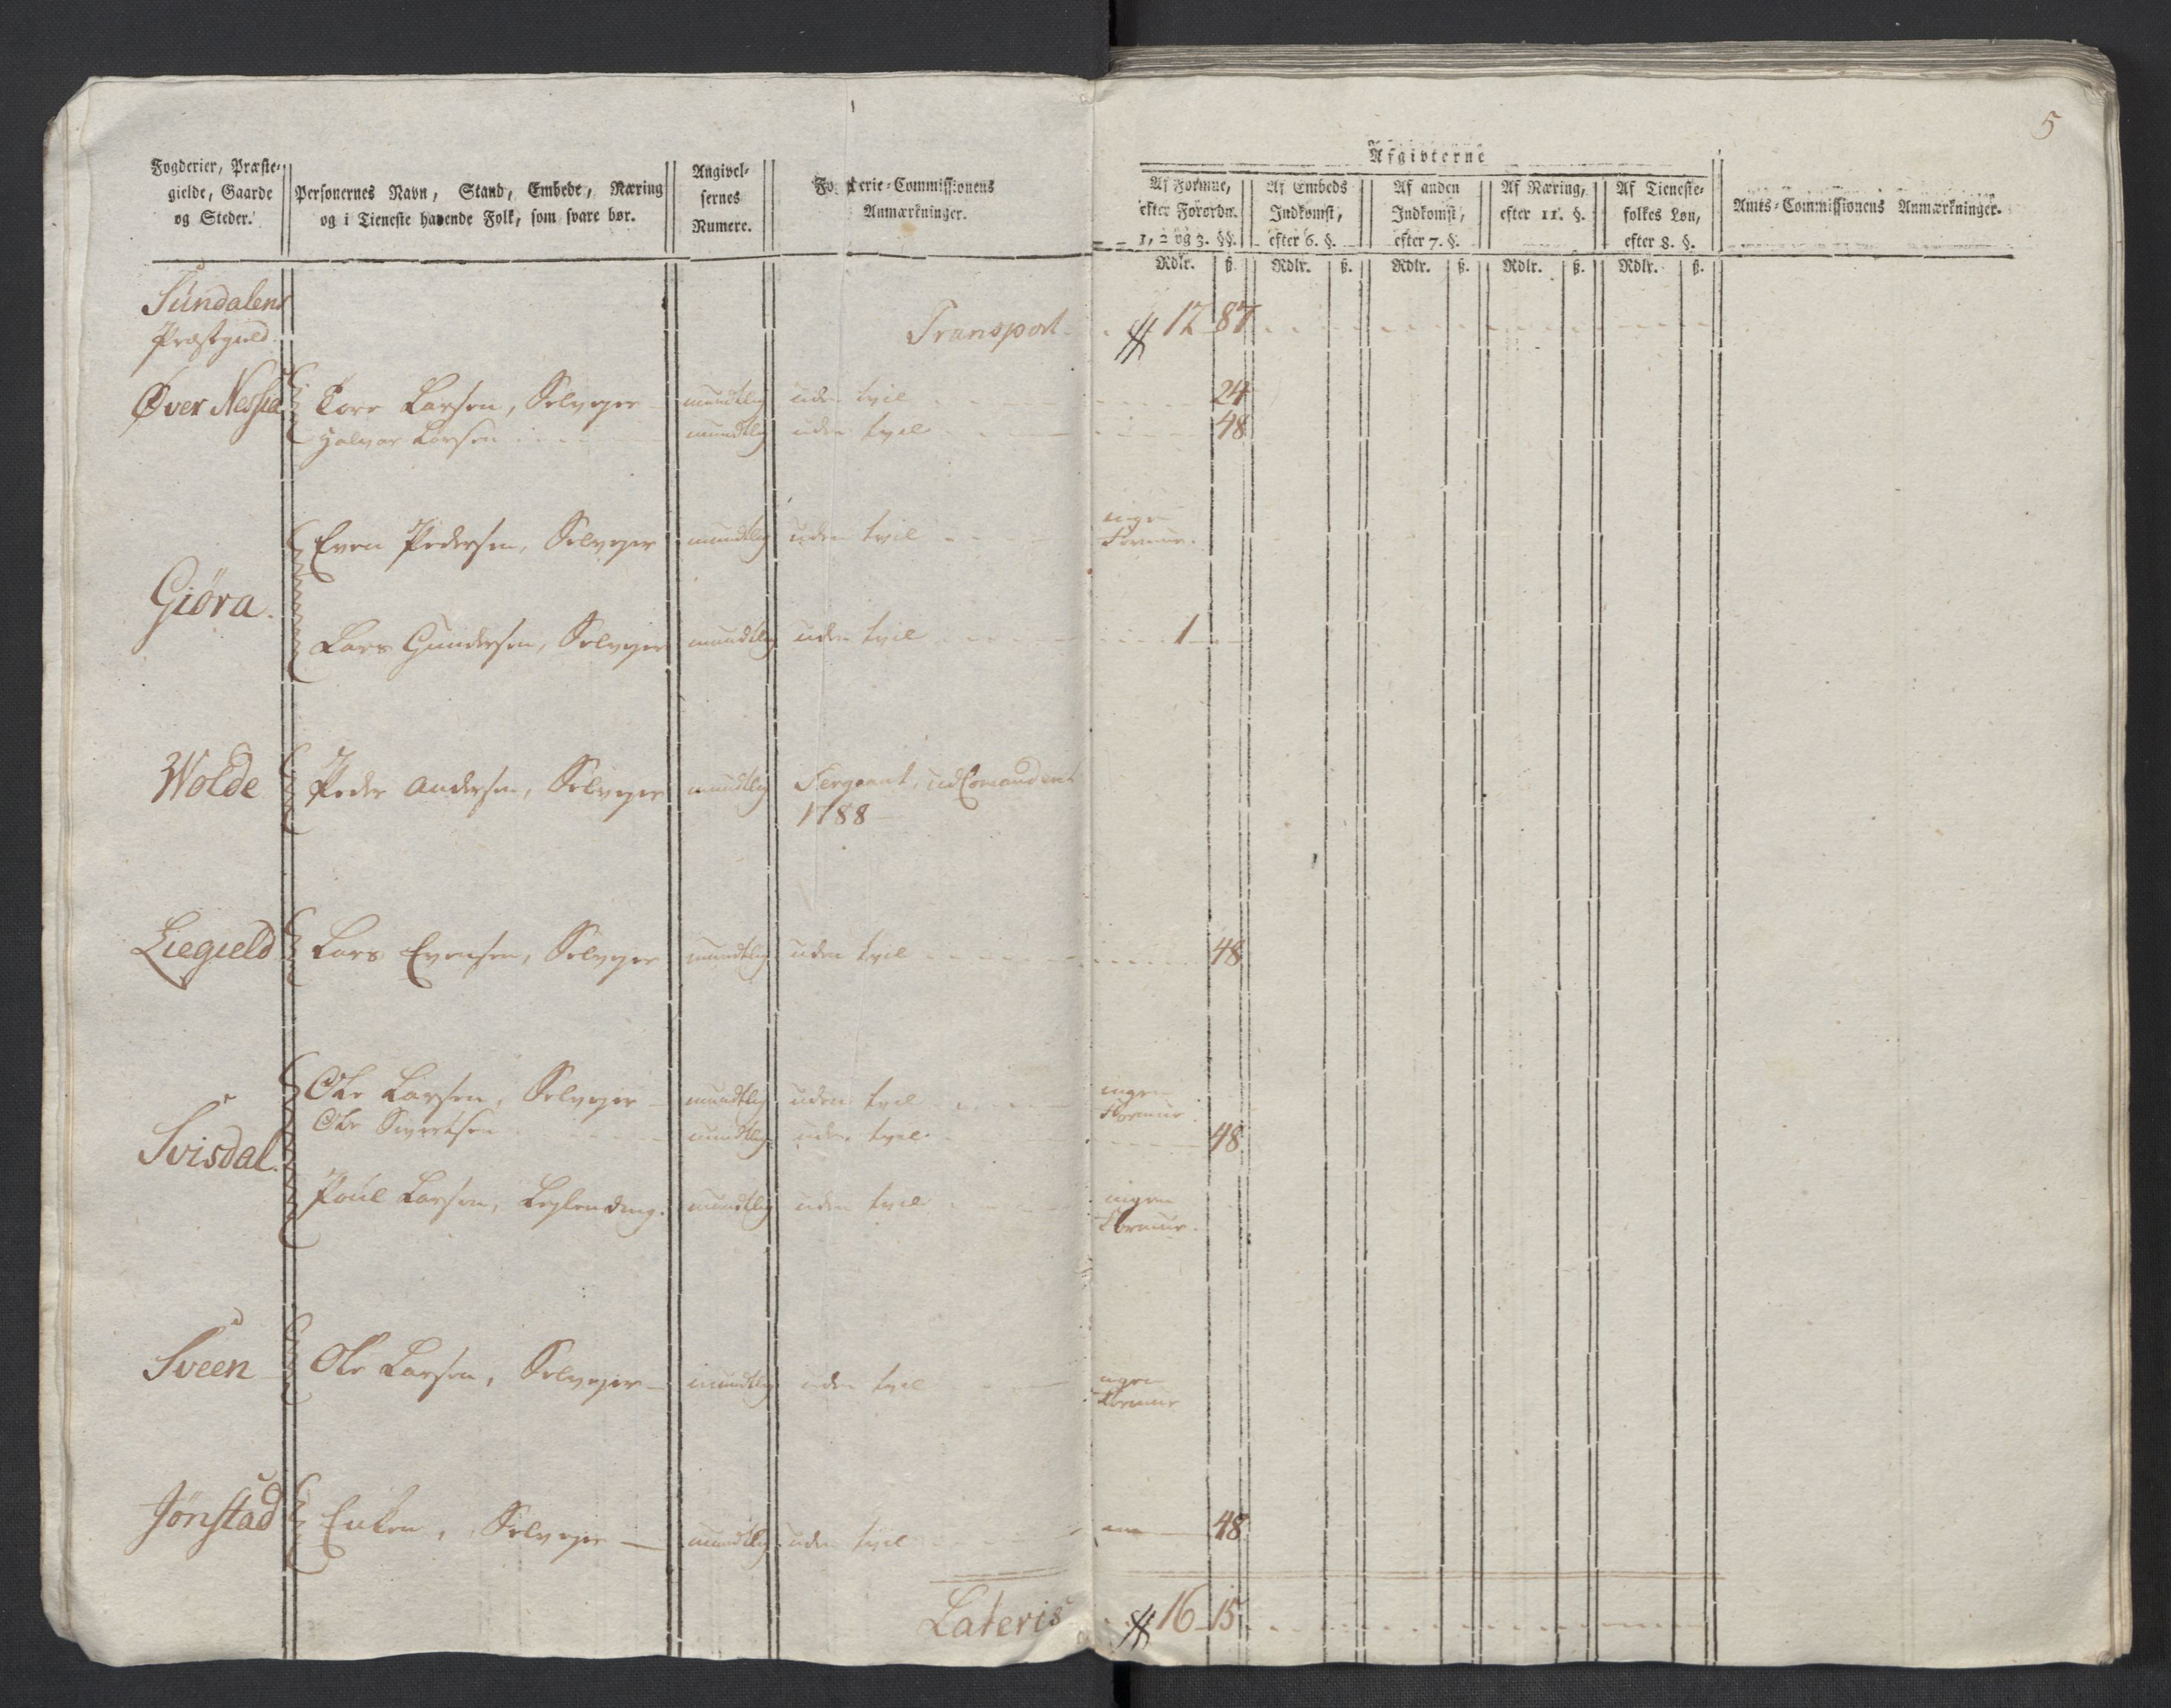 5
Afgivterne
Fogderier, Præste-
gielde, Gaarde
og Steder.
Personernes Navn, Stand, Embede, Næring
og i Tieneste havende Folk, som svare bør.
Angivel-
sernes
Numere.
Fo terie-Commissionens
Anmærkninger.
Af Formue,
efter Forordn.
1, 2 og 3. §§.
Af Embeds
Indkomst,
efter 6. §.
Af anden
Indkomst,
efter 7. §.
Af Næring,
efter 11. §.
Af Tieneste-
folkes Løn,
efter 8. §.
Amts-Commissionens Anmærkninger.
Rdlr. ß. Rdlr. ß. Rdlr. ß. Rdlr. ß. Rdlr. ß.
Sundalens
Præstgield.
Transport 12 87
Øver Nesja Tore Larsen, Selvejer mundtlig uden tvil 24
Halvor Larsen mundtlig uden tvil 48
Even Pedersen, Selvejer mundtlig uden tvil ingen
Formue.
Giøra.
Lars Gundersen, Selvejer mundtlig uden tvil 1
Wolde Peder Andersen, Selvejer mundtlig Sergeant, udComanderet
1788
Liegield Lars Evensen, Selvejer mundtlig uden tvil 48
Ole Larsen, Selvejer mundtlig uden tvil ingen
Formue
Ole Sivertsen mundtlig uden tvil 48
Svisdal.
Poul Larsen, Leylending. mundtlig uden tvil ingen
Formue.
Sveen Ole Larsen, Selvejer mundtlig uden tvil ingen
Formue
Jønstad Enken, Selvejer mundtlig uden tvil 48
Lateris 16 15